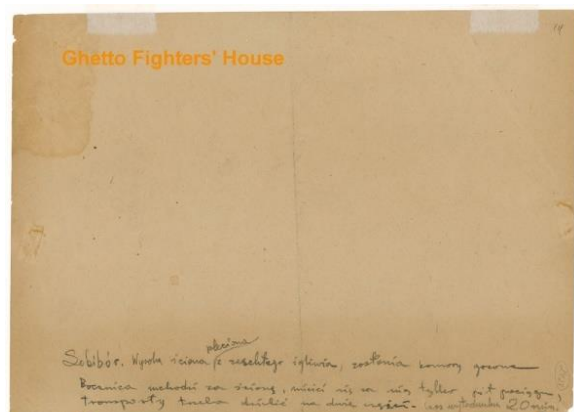 Ghetto Fighters' House
19
pleciona
Sobibór. Wysoka ściana z zeschłego igliwia, zasłania komory gazowe
Bocznica wchodzi za ścianę, mieści się za nią tylko
transporty trzeba dzielić na dwie części. 20 min,